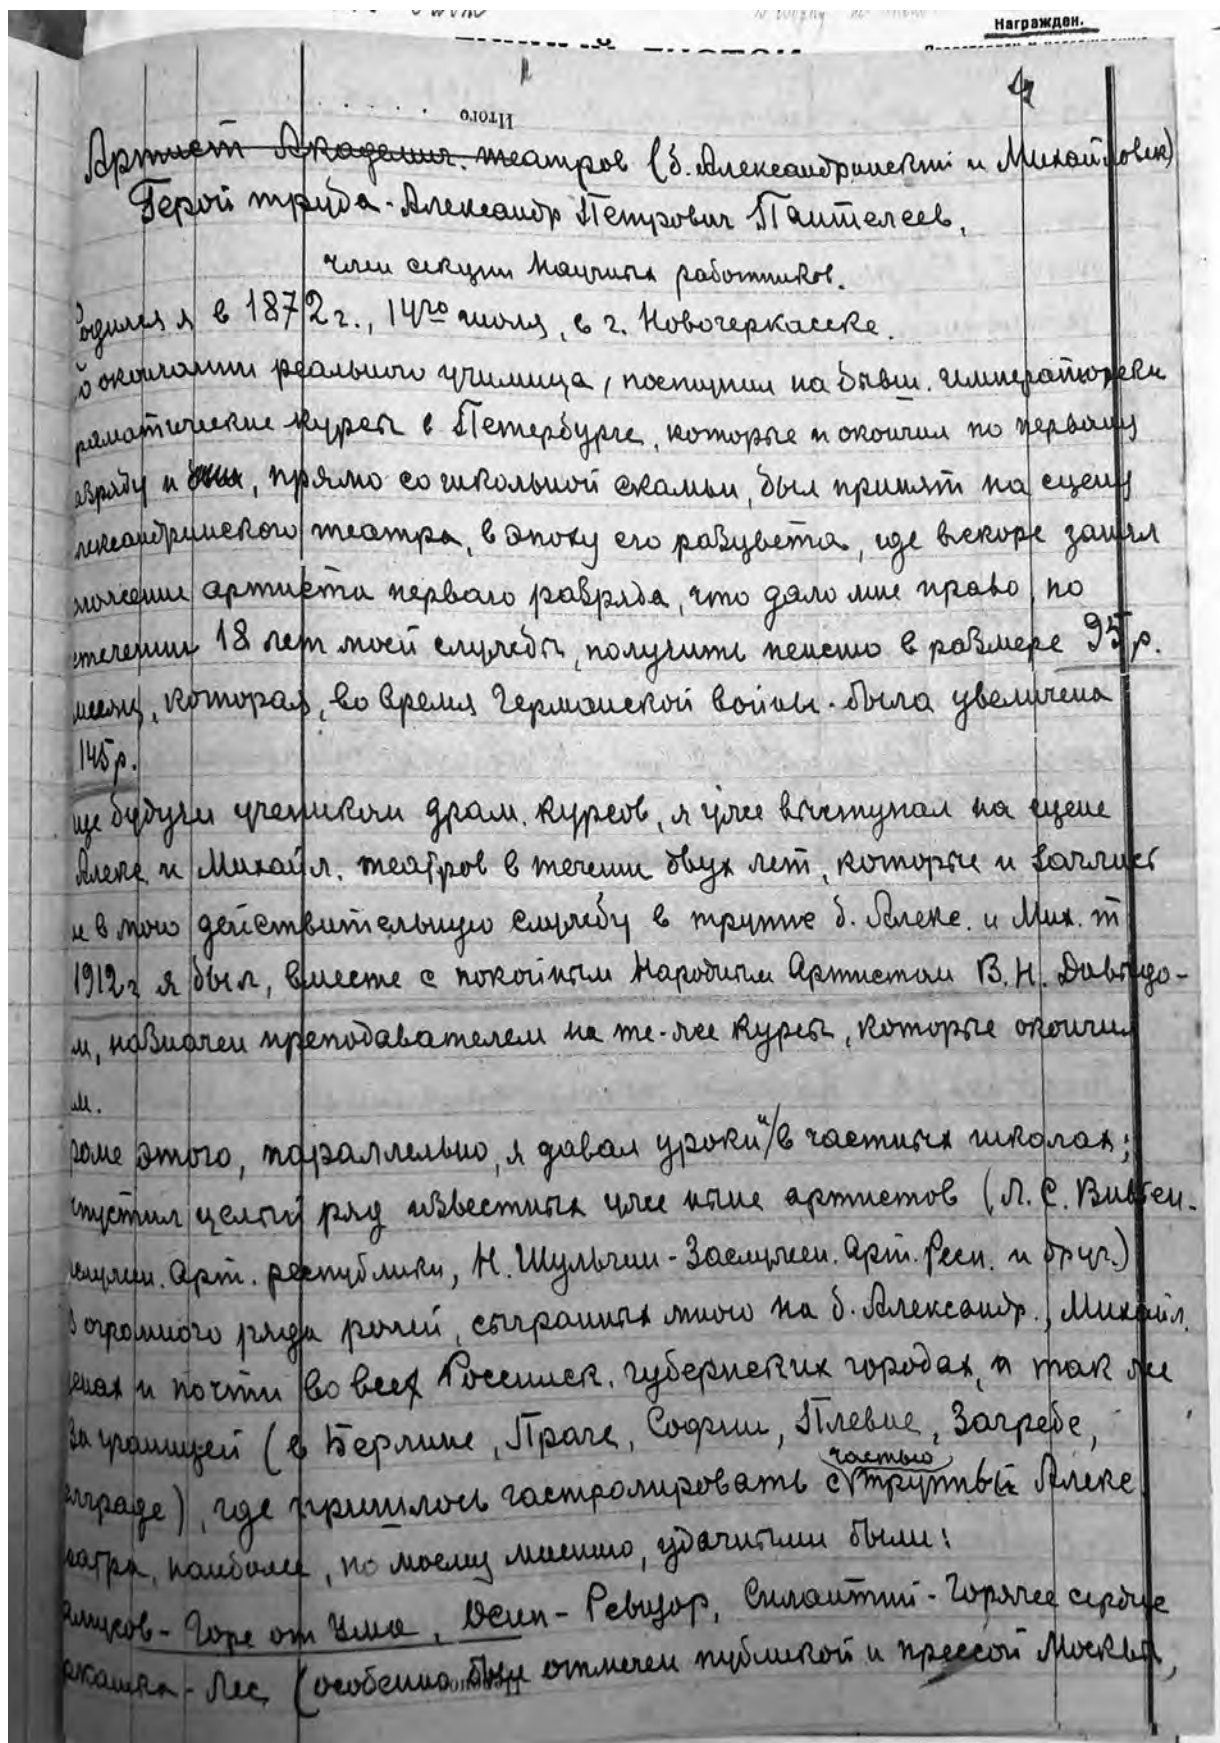 Награжден.
Итого
Артист Академич. театров (б. Александринский и Михайловск)
Герой труда - Александр Петрович Пантелеев,
член секции Научных работников.
одился я в 1872 г., 14го июля, в г. Новочеркасске.
о окончании реального училища, поступил на бывш. императорски
раматические курсы в Петербурге, которые и окончил по первому
азряду и, прямо со школьной скамьи, был принят на сцену
лександринского театра, в эпоху его разцвета, где вскоре занял
оложение артиста первого разряда, что дало мне право, по
стечении 18 лет моей службы, получить пенсию в размере 95 р.
месяц, которая, во время Германской войны - была увеличена
145 р.
ще будучи учеником драм. курсов, я уже выступал на сцене
Алекс. и Михайл. театров в течении двух лет, которые и вошлись
и в мою действительную службу в труппе б. Алекс. и Мих. т
1912 г я был, вместе с покойным Народным Артистом В. Н. Давыдо-
м, назначен преподавателем на те-же курсы, которые окончил
м.
роме этого, параллельно, я давал уроки и в частных школах;
ыпустил целый ряд известных уже ныне артистов (Л. С. Вивьен -
служен. Арт. республики, Н. Шульгин - Заслужен. Арт. Респ. и друг.)
з огромного ряда ролей, сыгранных мною на б. Александр., Михайл.
ценах и почти во всех Российск. губернских городах, а так же
за границей (в Берлине, Праге, Софии, Плевне, Загребе,
елграде), где пришлось гастролировать с частью труппы Алекс.
театра, наиболее, по моему мнению, удачными были:
амусов - Горе от Ума, Осип - Ревизор, Силантий - Горячее сердце
ркашка - Лес (особенно был отмечен публикой и прессой Москвы,